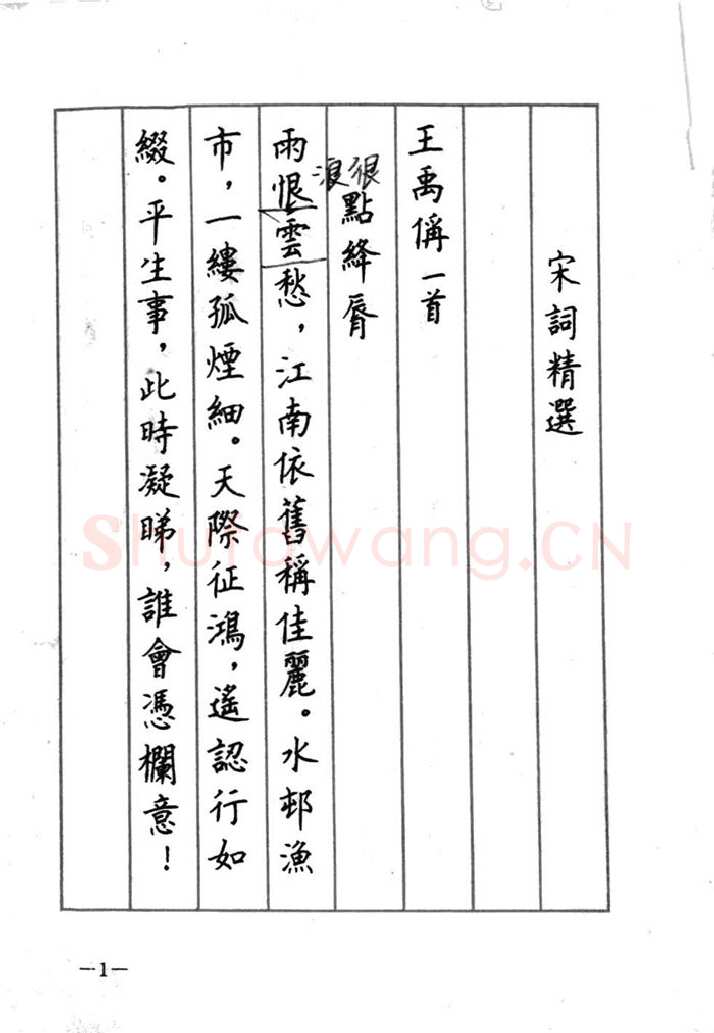 宋詞精選
王禹偁一首
點絳脣
很
浪
雨恨雲愁，江南依舊稱佳麗。水邨漁
市，一縷孤煙細。天際征鴻，遙認行如
綴。平生事，此時凝睇，誰會憑欄意！
—1—
Shufawang.CN